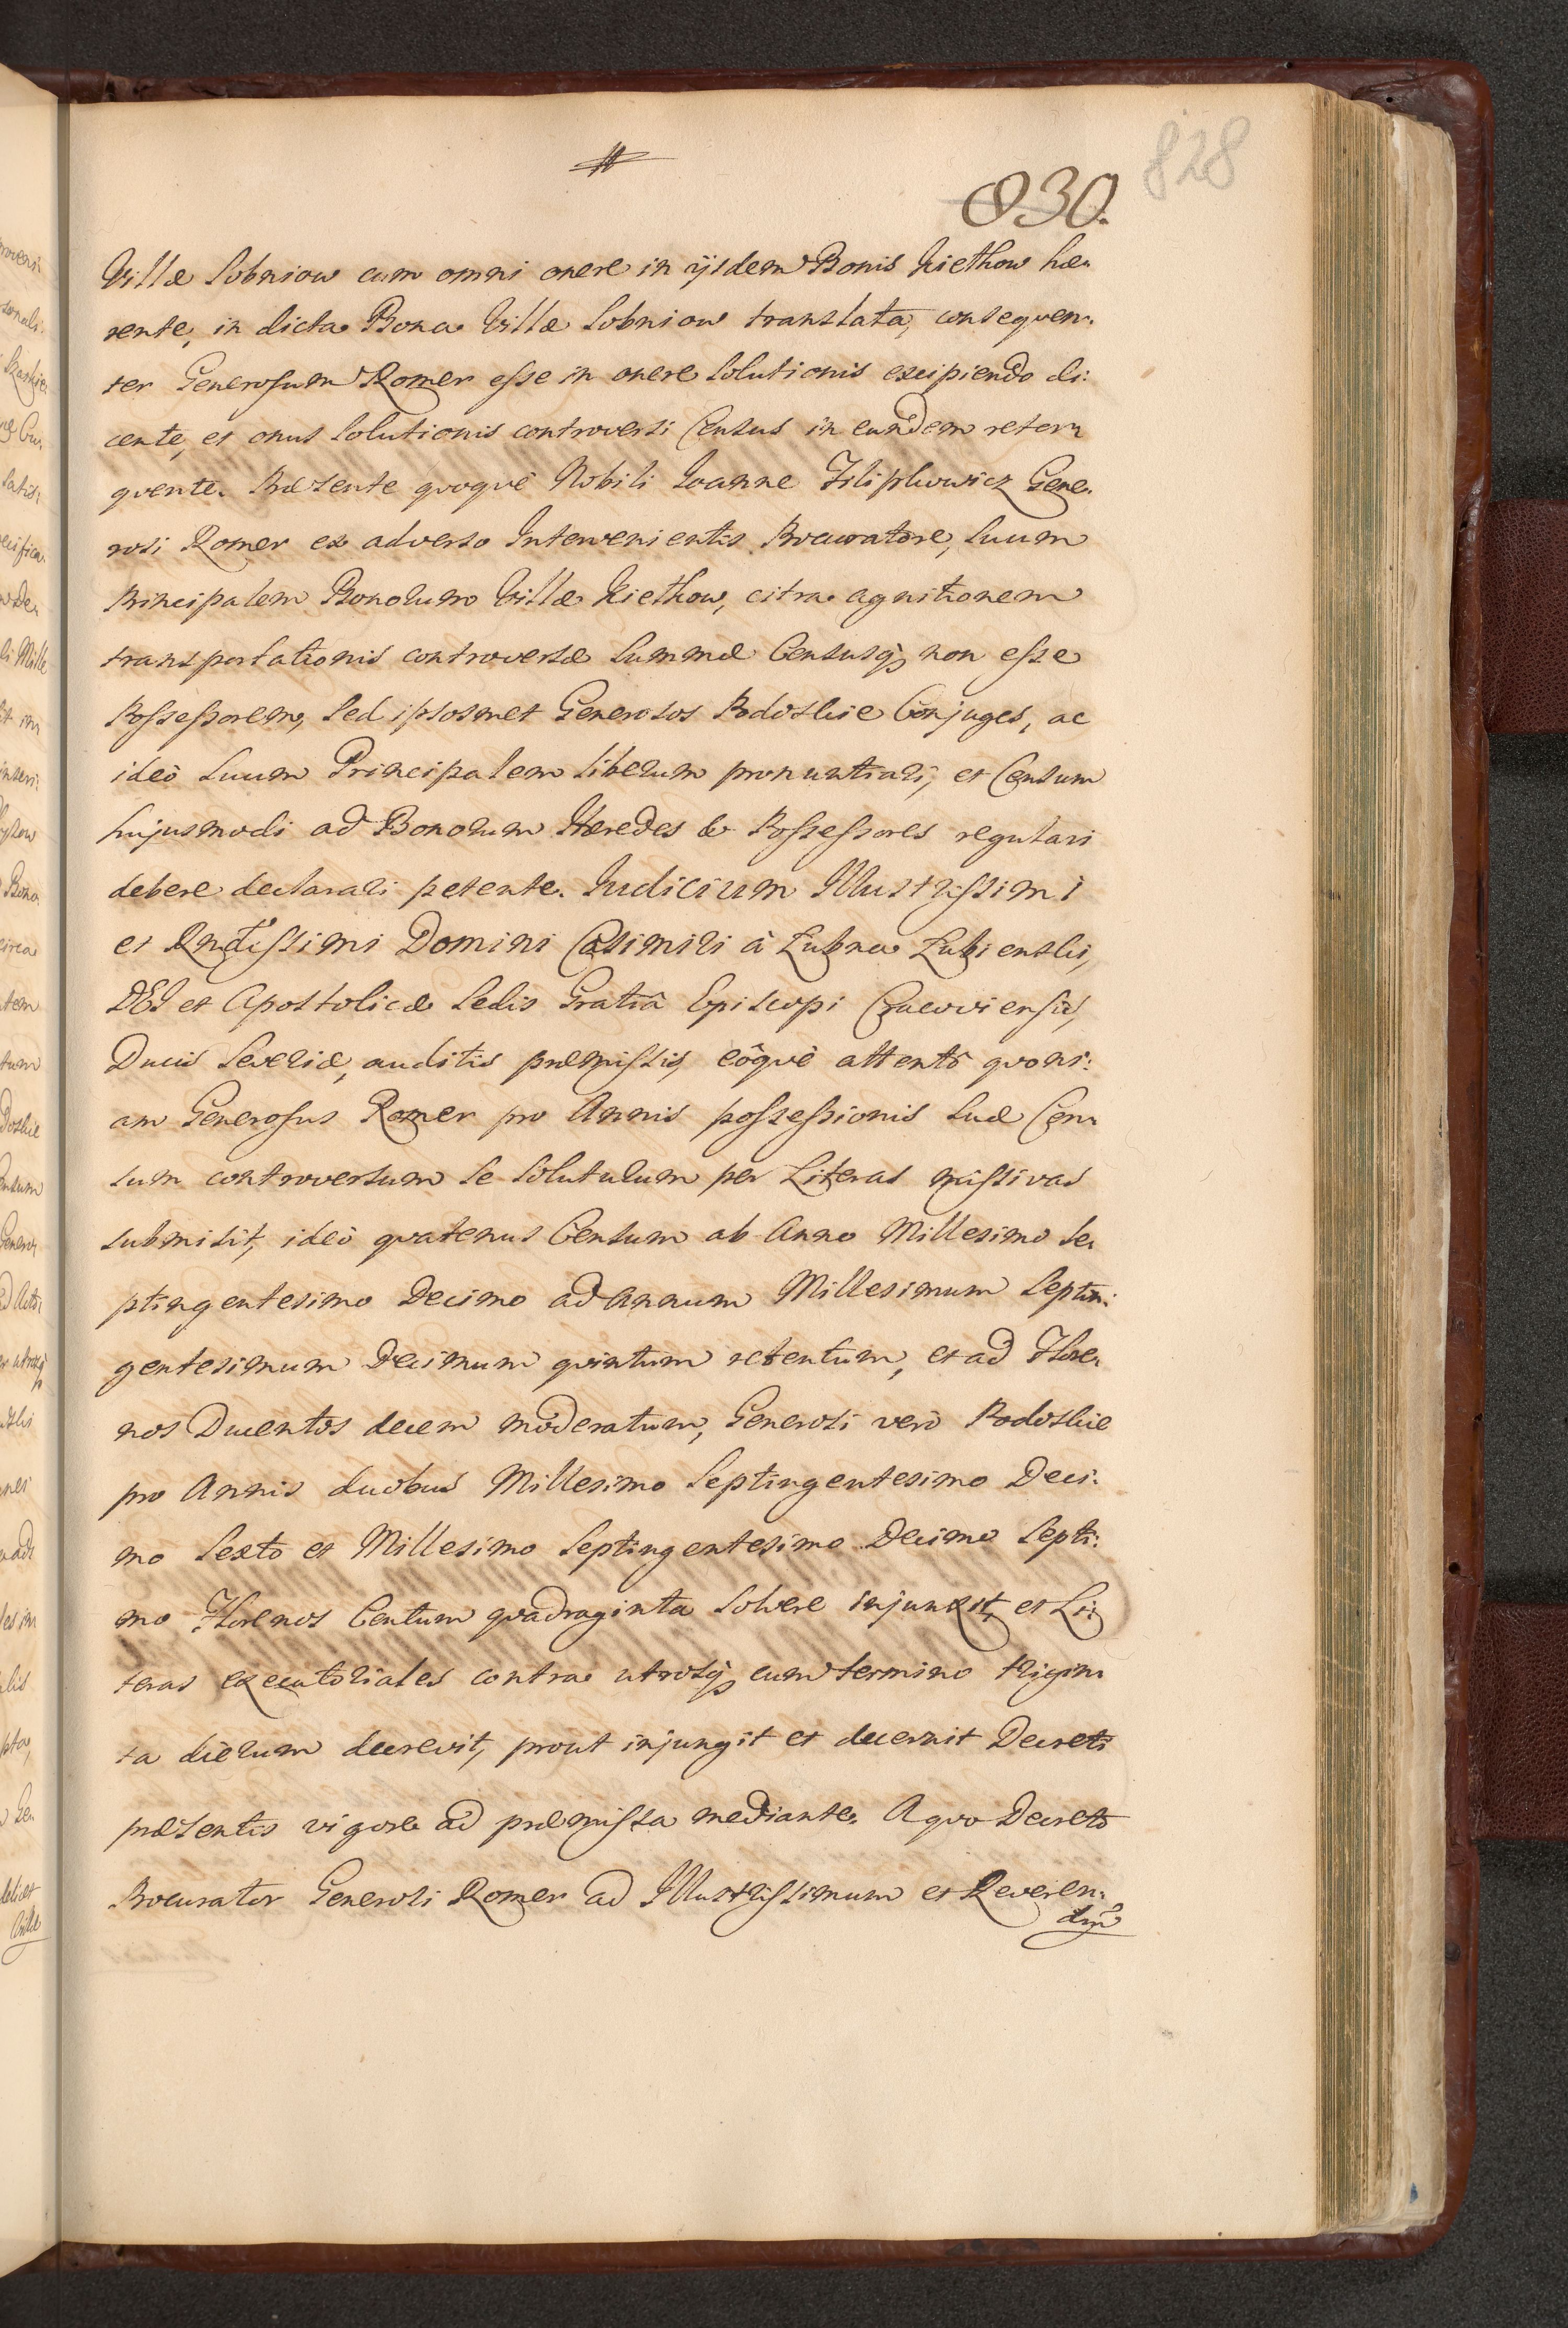 828
830.
Villæ Sobniow cum omni onere in ijsdem Bonis Kiethow hæ-
rente, in dicta Bona Villæ Sobniow translata, consequen-
ter Generosum Romer esse in onere solutionis excipiendo di:
cente, et onus solutionis controversi Census in eundem retor-
quente. Præsente quoquè Nobili Joanne Filipkowicz Gene-
rosi Romer ex adverso Intervenientis Procuratore, suum
Principalem Bonorum Villæ Kiethow, citra agnitionem
transportationis controversæ summæ Censusq3 non esse
Possessorem, sed ipsosmet Generosos Podoskie Conjuges, ac
ideò suum Principalem liberum pronuntiari, et Censum
hujusmodi ad Bonorum Hæredes & Possessores regulari
debere declarari petente. Judicium Illustrissimi
et Rndissimi Domini Casimiri à Łubna Łubienski,
DEI et Apostolicæ Sedis Gratiâ Episcopi Cracoviensis,
Ducis Severiæ, auditis præmissis, eôquè attentô quoni:
am Generosus Romer pro Annis possessionis suæ Cen-
sum controversum se soluturum per Literas missivas
submisit, ideò quatenus Censum ab Anno Millesimo Se-
ptingentesimo Decimo ad Annum Millesimum Septin:
gentesimum Decimum quintum retentum, et ad Flore-
nos Ducentos decem moderatum, Generosi verò Podoskie
pro Annis duobus Millesimo Septingentesimo Deci:
mo Sexto et Millesimo Septingentesimo Decimo Septi:
mo Florenos Centum quadraginta solvere injunxit, et Li:
teras executoriales contra utrosq3 cum termino trigin-
ta dierum decrevit, prout injungit et decernit Decreti
præsentis vigore ad præmissa mediante. A quo Decreto
Procurator Generosi Romer ad Illustrissimum et Reveren-